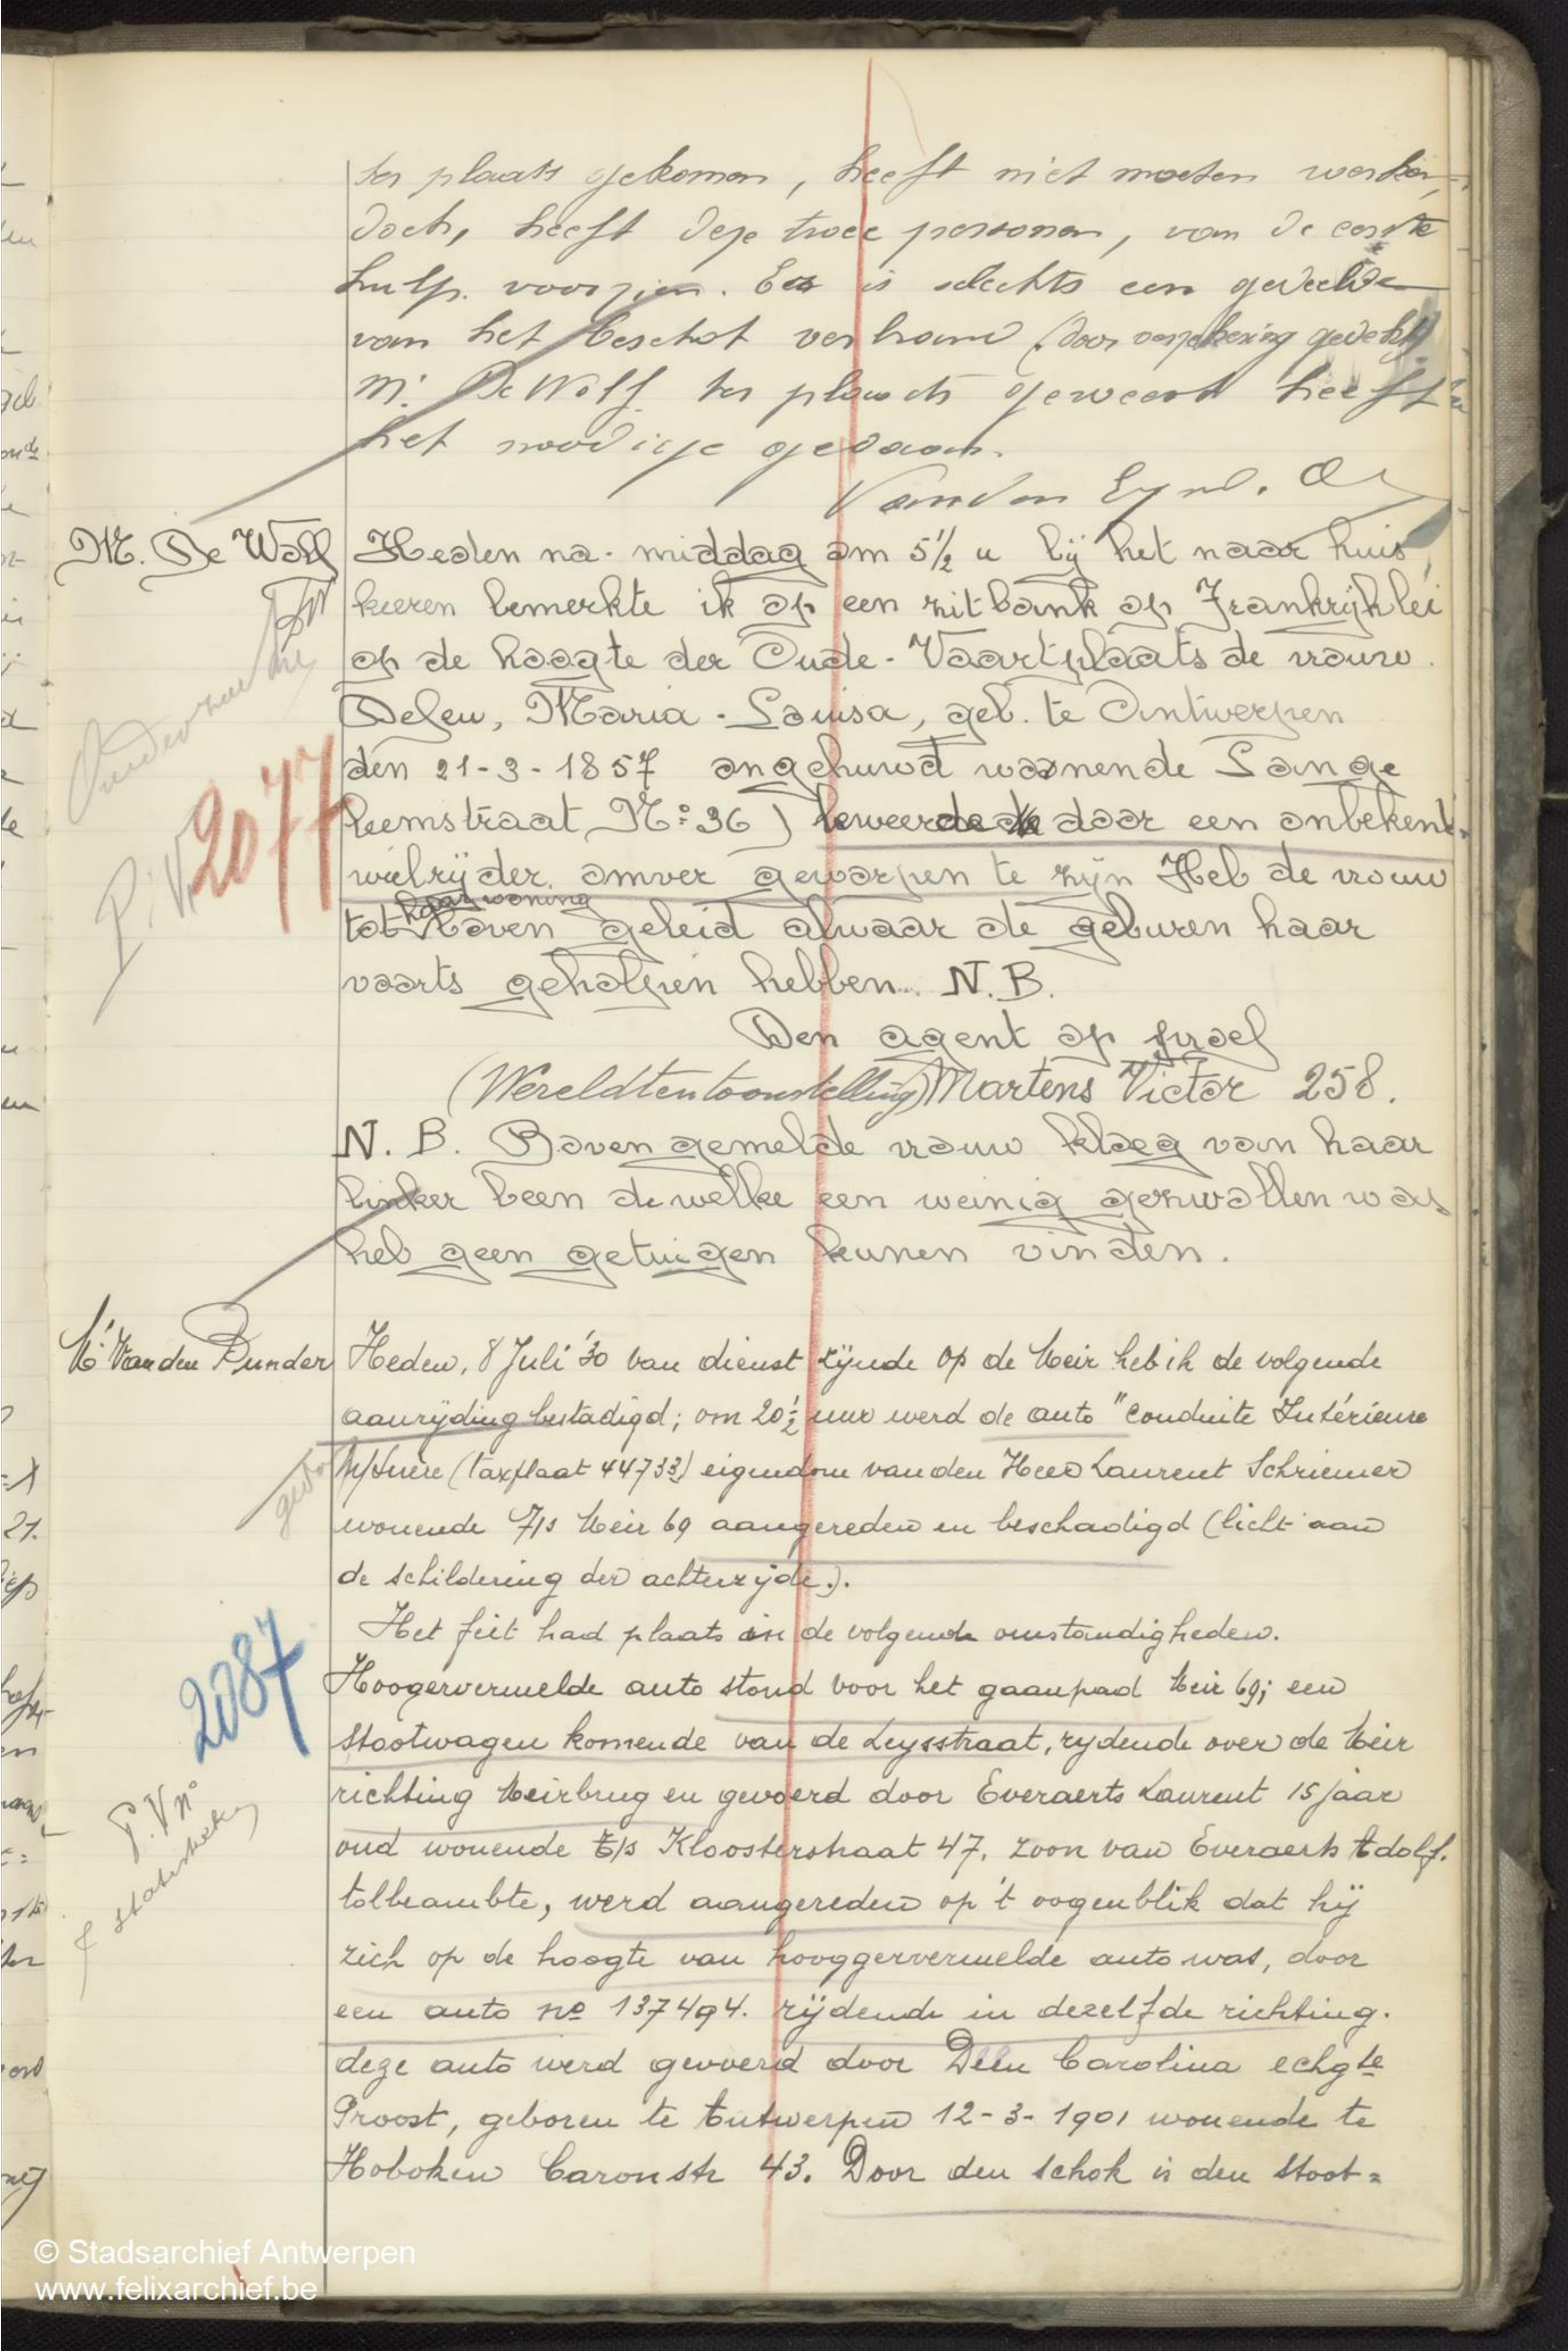 ter plaats gekomen, heeft niet moeten werken,
doch, heeft deze twee personen, van de eerste
hulp voorzien. Er is slechts een gedeelte
van het beschot verbrand (door verzekering gedekt)
Mr. De Wolf ter plaats geweest heeft
het noodige gedaan.
Vanden Eynd.
M. De Wolf
Heden na-middag om 5½ u bij het naar huis
keeren bemerkte ik op een zitbank op Frankrijklei
op de hoogte der Oude-Vaartplaats de vrouw
Deleu, Maria-Louisa, geb. te Antwerpen
den 21-3-1857 ongehuwd woonende Lange
leemstraat N:o 36) beweerde door een onbekend
wielrijder omver geworpen te zijn Heb de vrouw
haar woning
tot Haven geleid alwaar de geburen haar
voorts geholpen hebben. N.B.
Den agent op proef
(Wereldtentoonstelling) Martens Victor 258.
P.V. 2077
N. B. Bovengemelde vrouw kloeg van haar
linker been dewelke een weinig gezwollen was
heb geen getuigen kunen vinden.
Mr Van den Bunder
Heden, 8 Juli '30 van dienst zijnde op de Meir heb ik de volgende
aanrijding bestadigd; om 20½ uur werd de auto "Conduite Intérieure
(taxplaat 44733) eigendom van den Heer Laurent Schriemer
wonende t/s Meir 69 aangereden en beschadigd (licht aan
de schildering der achterzijde).
Het feit had plaats in de volgende omstandigheden.
Hoogervermelde auto stond voor het gaanpad Meir 69; een
stootwagen komende van de Leysstraat, rydende over de Meir
richting Meirbrug en gevoerd door Everaerts Laurent 15 jaar
oud wonende t/s Kloosterstraat 47, zoon van Everaerts Adolf.
tolbeambte, werd aangereden op 't oogenblik dat hij
zich op de hoogte van hooggervermelde auto was, door
een auto no 137494. rijdende in dezelfde richting.
deze auto werd gevoerd door Deen Carolina echgte
Proost, geboren te Antwerpen 12-3-1901 wonende te
Hoboken Caronstr 43. Door den schok is den stoot=
2087
P.V no
statistiek
© Stadsarchief Antwerpen
www.felixarchief.be